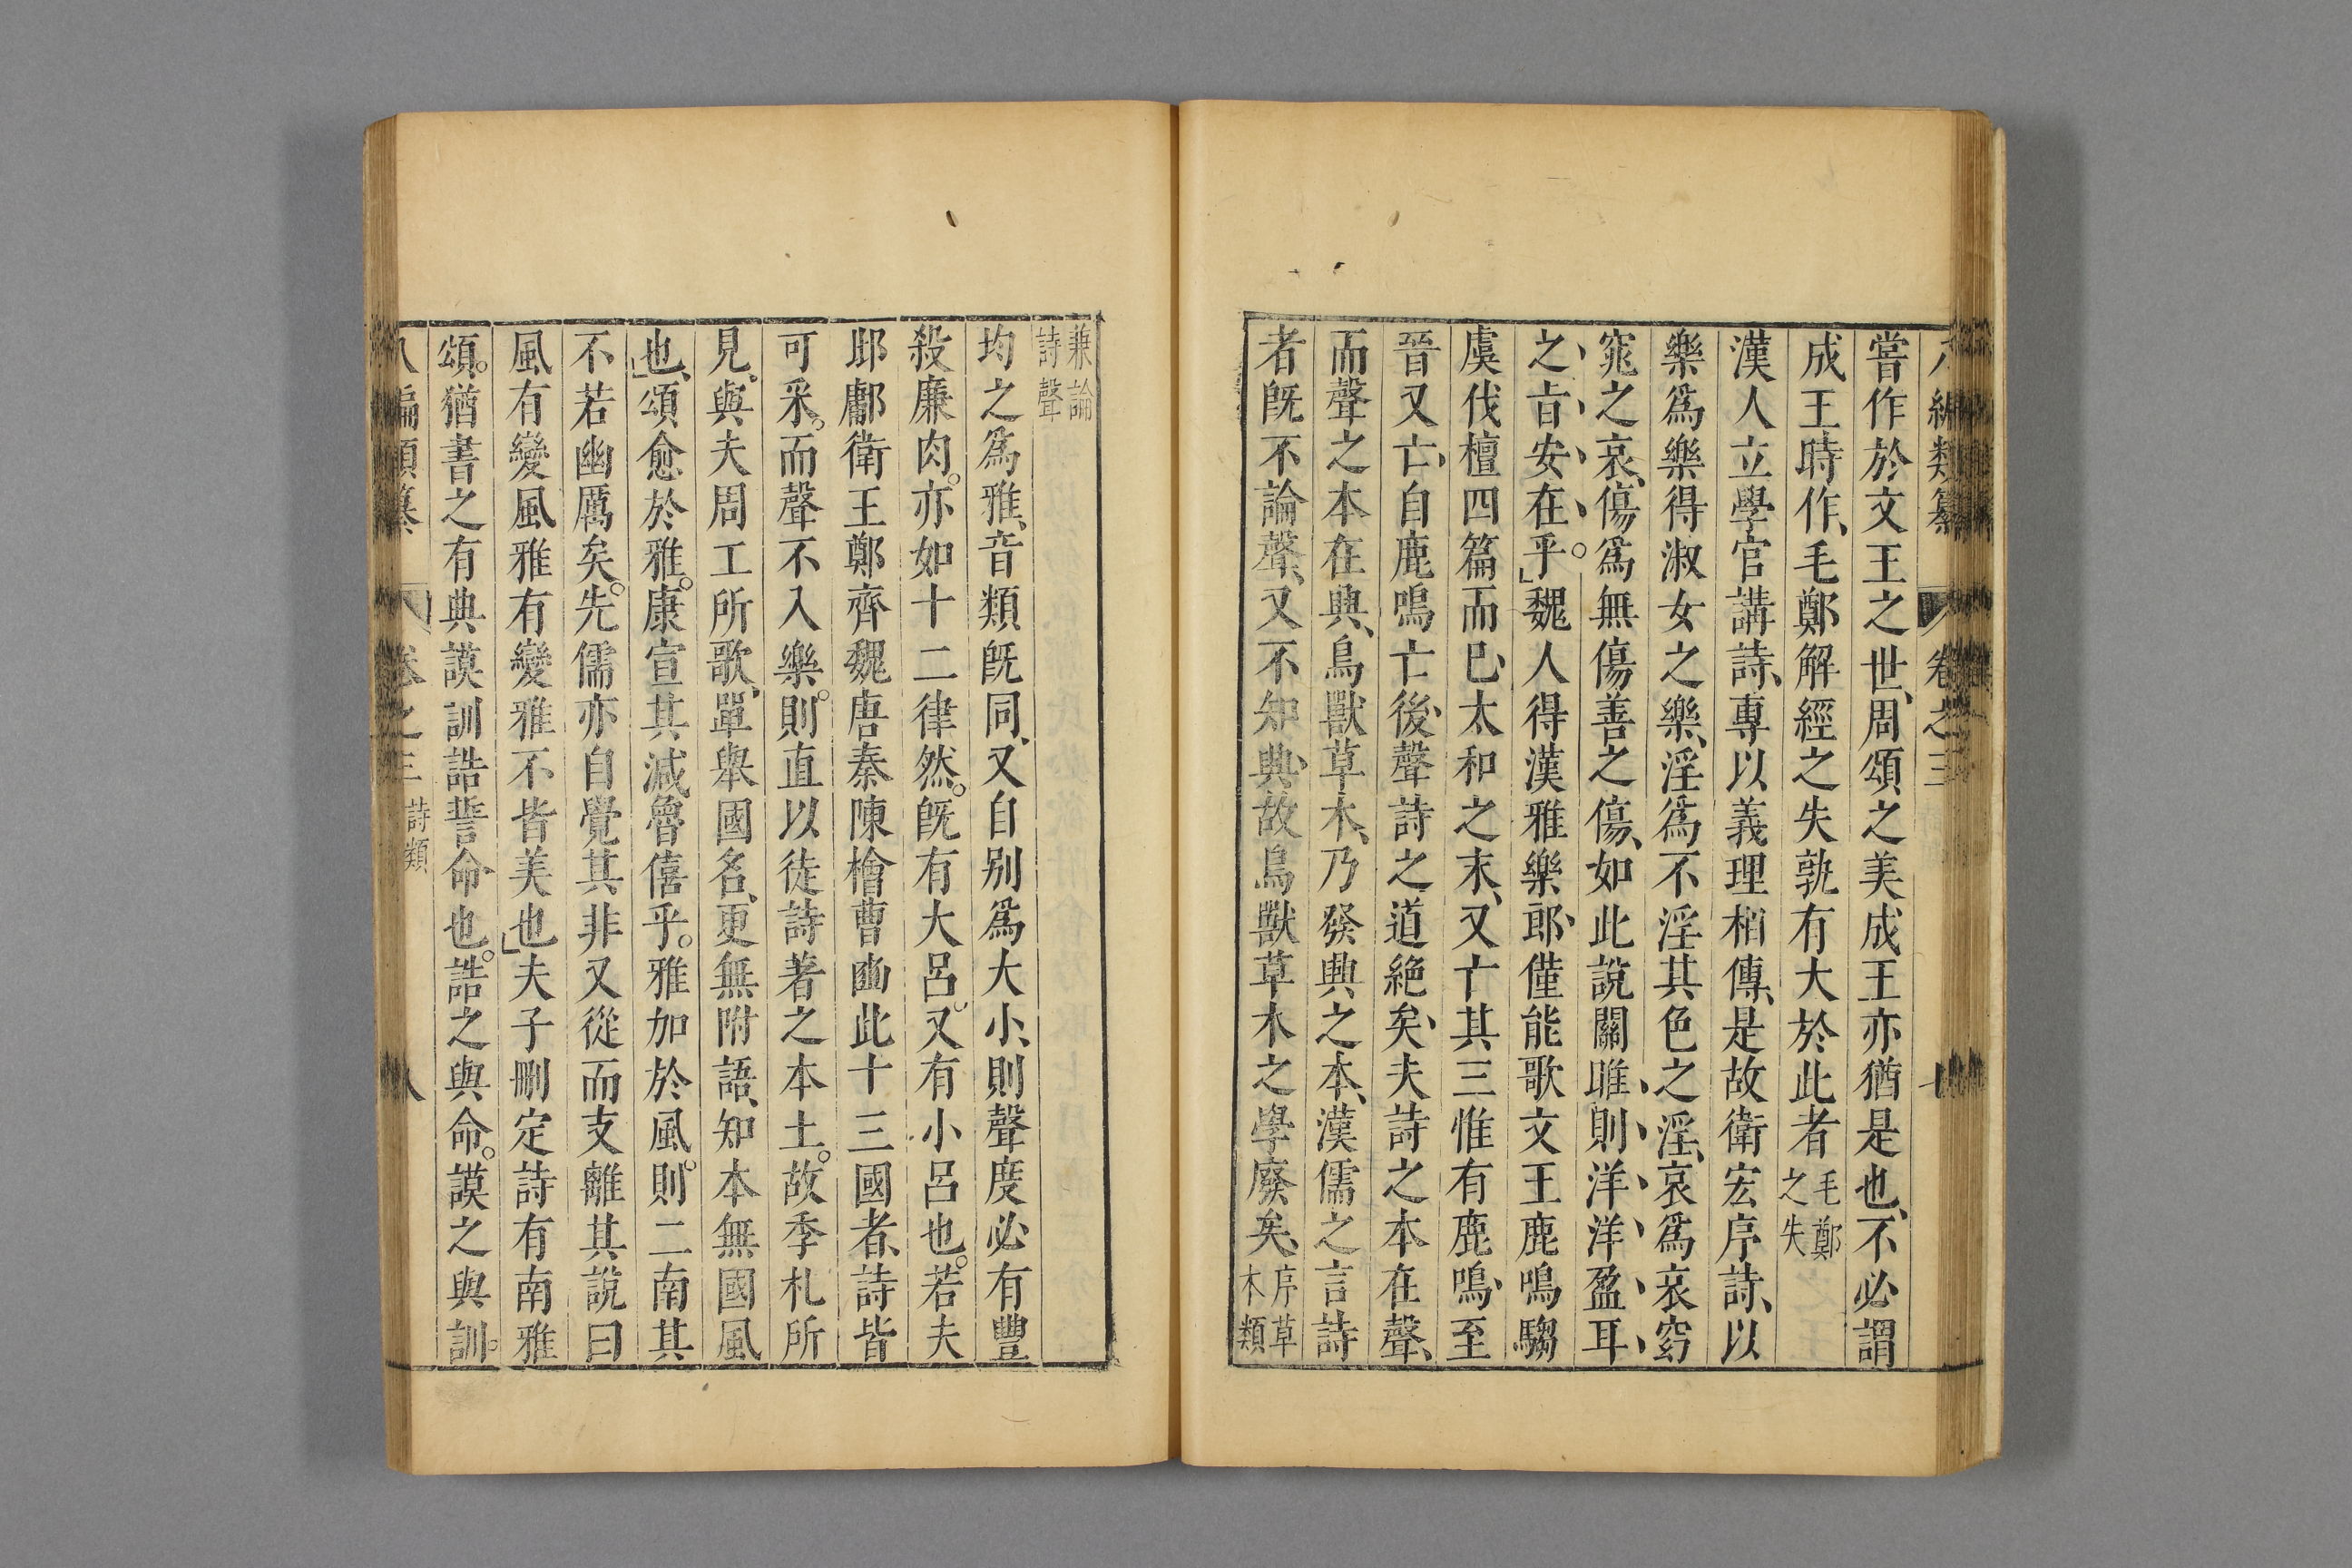 編類纂 卷之三 七
嘗作於文王之世、周頌之美成王亦猶是也、不必謂
成王時作、毛鄭解經之失孰有大於此者毛鄭之失
漢人立學官講詩、專以義理相傳、是故衛宏序詩、以
樂爲樂得淑女之樂、淫爲不淫其色之淫、哀爲哀窈
窕之哀、傷爲無傷善之傷、如此說關雎、則洋洋盈耳
之旨安在乎。魏人得漢雅樂郎、僅能歌文王鹿鳴騶
虞伐檀四篇而已、太和之末、又亡其三惟有鹿鳴、至
晉又亡、自鹿鳴亡後、聲詩之道絶矣、夫詩之本在聲、
而聲之本在興、鳥獸草木、乃發興之本、漢儒之言詩
者旣不論聲、又不知興、故鳥獸草木之學廢矣、序草木類
兼論詩聲
均之爲雅、音類旣同、又自别爲大小、則聲度必有豐
殺廉肉。亦如十二律然。旣有大呂。又有小呂也。若夫
邶鄘衛王鄭齊魏唐秦陳檜曹豳此十三國者、詩皆
可采。而聲不入樂。則直以徒詩著之本土。故季札所
見、與夫周工所歌、單舉國名、更無附語、知本無國風
也、頌愈於雅。康宣其減魯僖乎。雅加於風。則二南其
不若幽厲矣。先儒亦自覺其非又從而支離其說曰
風有變風雅有變雅不皆美也夫子刪定詩有南雅
頌。猶書之有典謨訓誥誓命也。誥之與命。謨之與訓。
八編類纂 卷之三 詩類 八